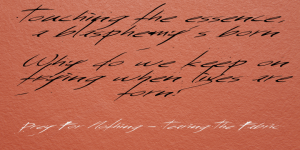 Touching the essence,
a blasphemy's born
Why do we keep on
trying when lives are
torn?
Pray For Nothing - Tearing The Fabric